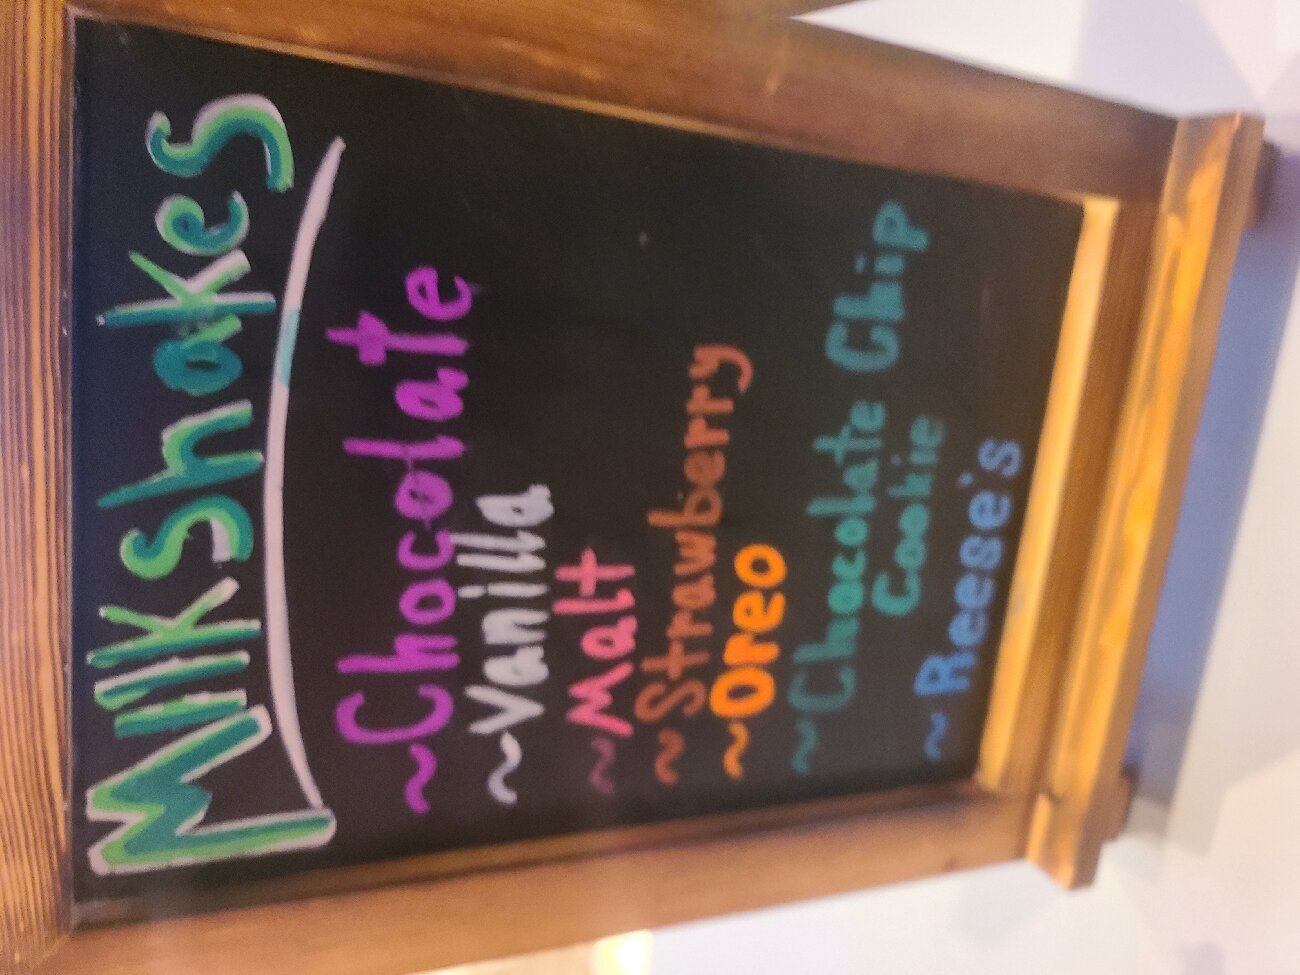 Milkshakes
~Chocolate
~Vanilla
~Malt
~Strawberry
~Oreo
~Chocolate Chip
Cookie
~Reese's